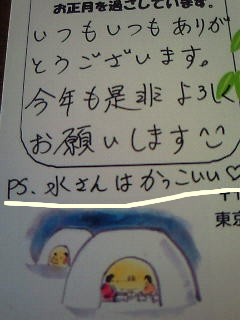 お正月を過ごしています。
いつもいつもありが
とうございます。
今年も是非よろしく
お願いします
PS、水さんはかっこいい♡
〒1
東京